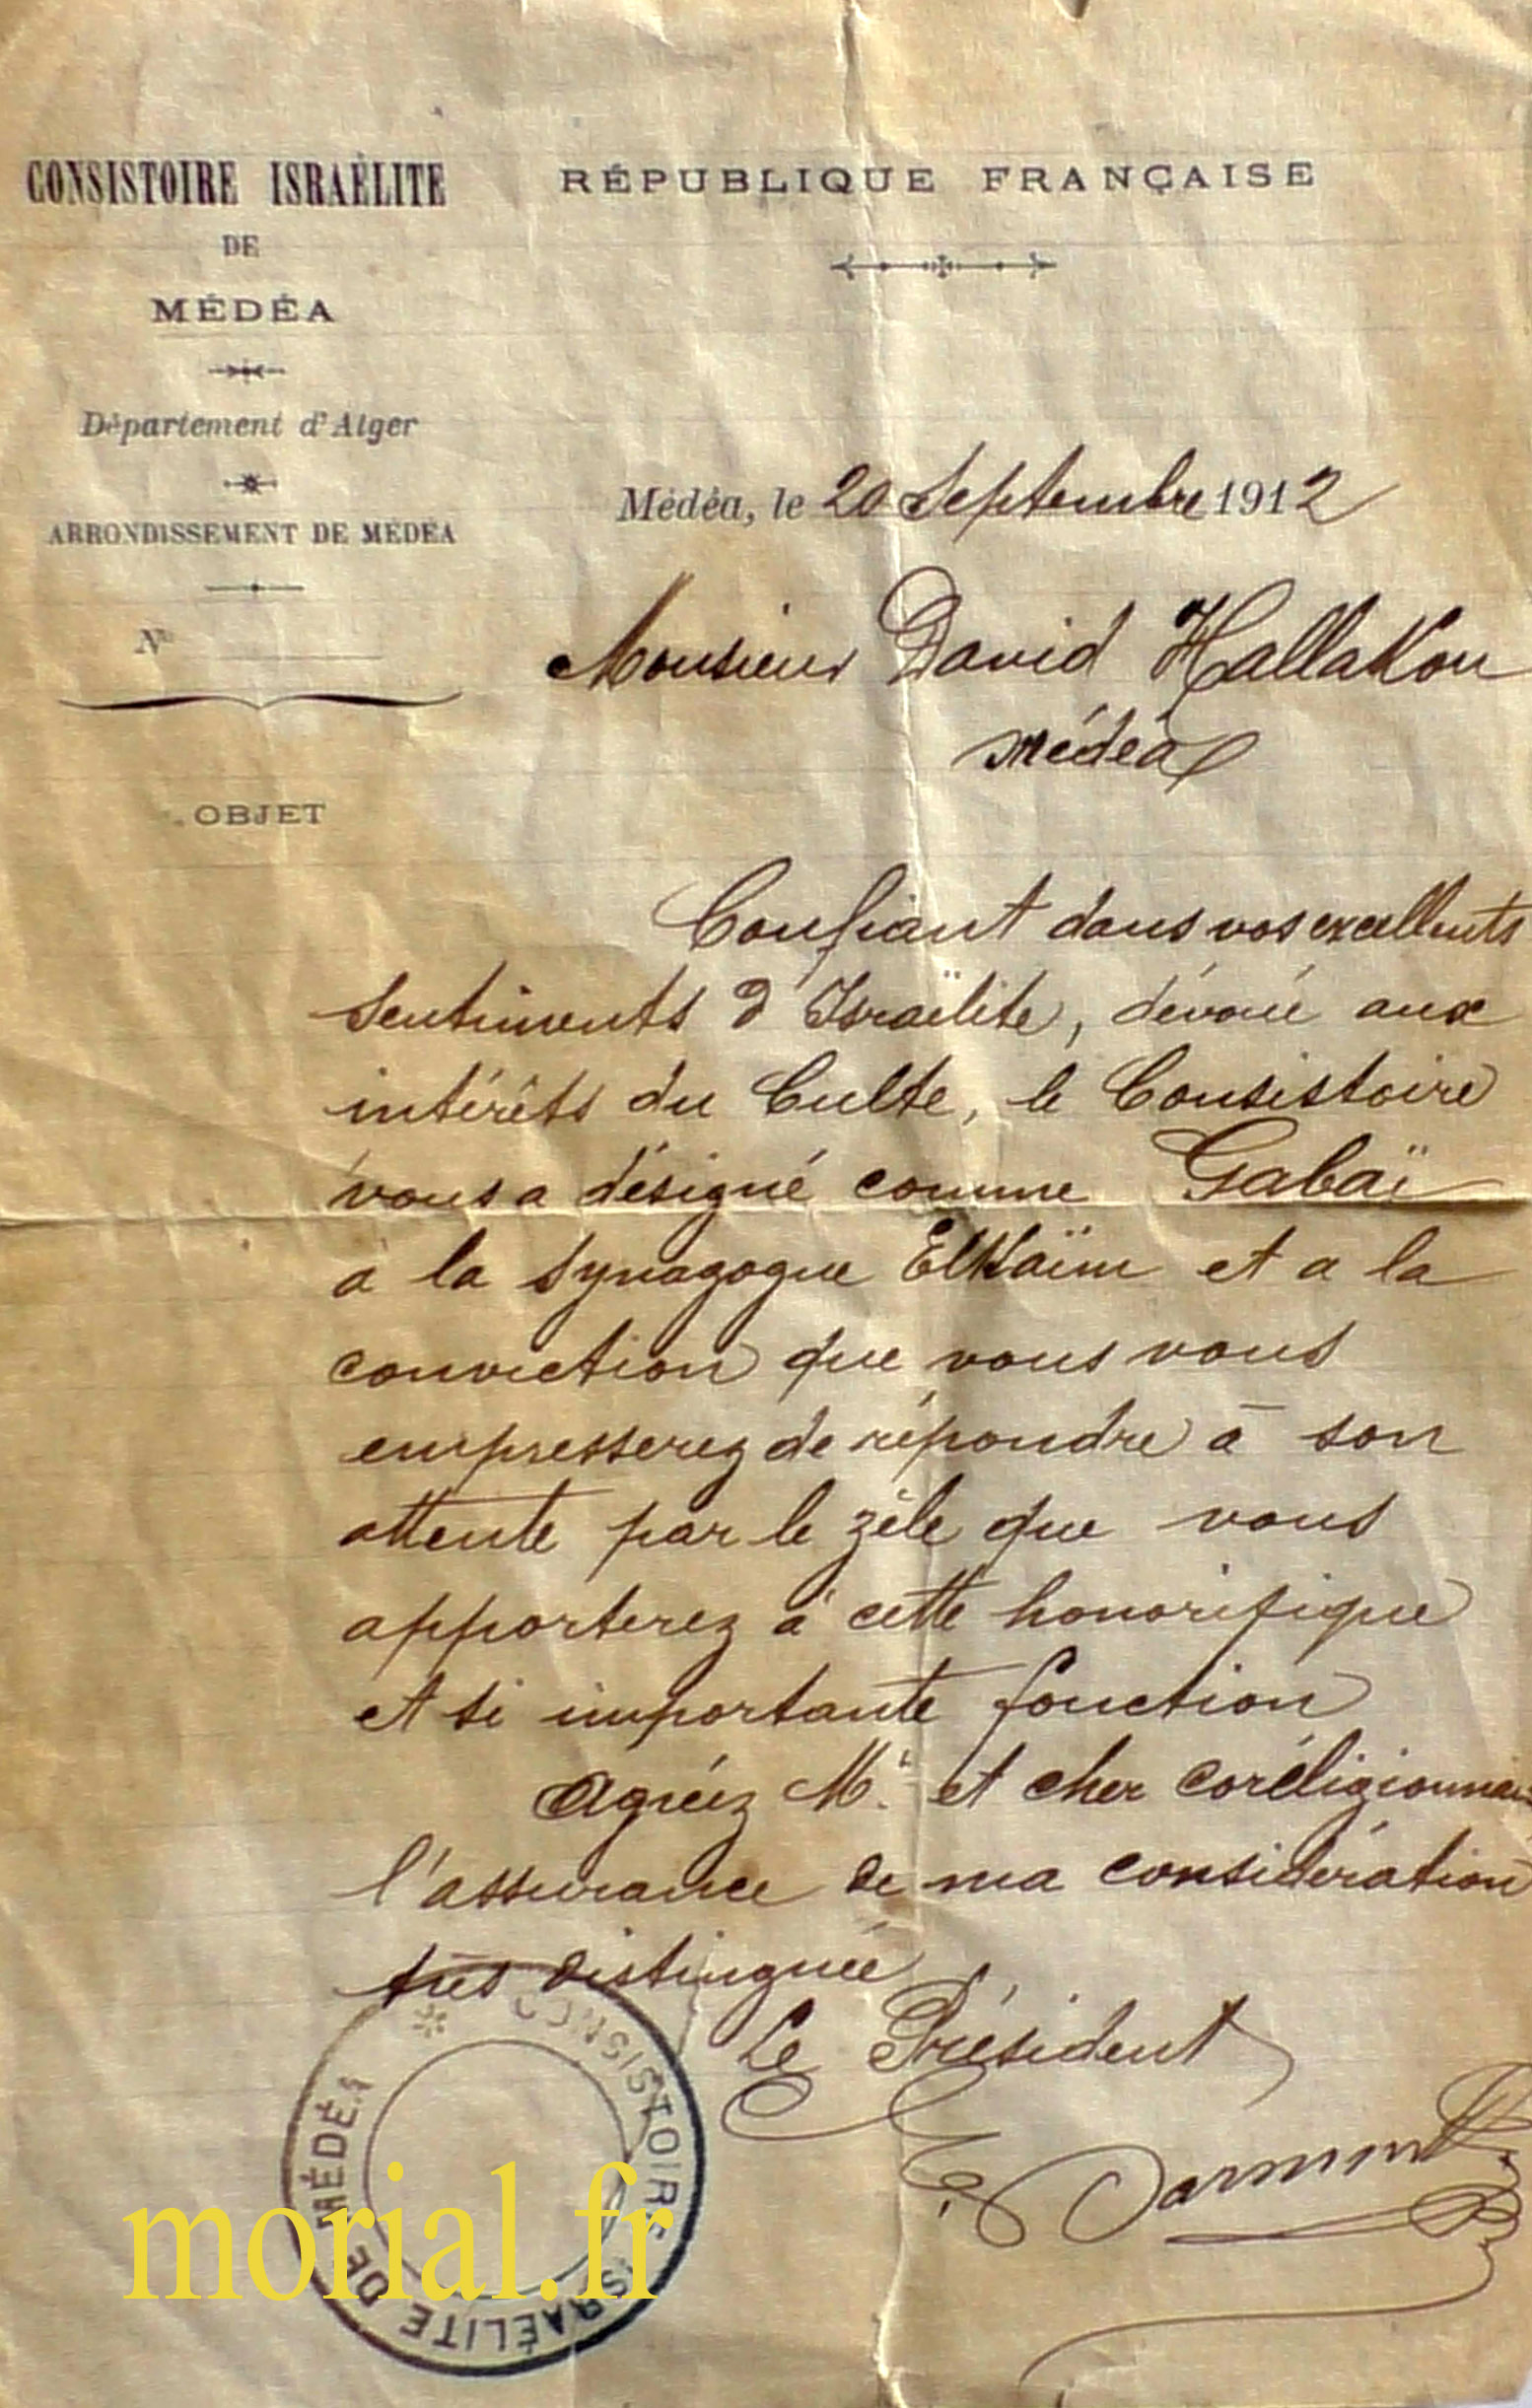 CONSISTOIRE ISRAÉLITE
DE
MÉDÉA
Département d'Alger
ARRONDISSEMENT DE MÉDÉA
N°
OBJET
RÉPUBLIQUE FRANÇAISE
Médéa, le 20 Septembre 1912
Monsieur David Hallakou
Médéa
Confiant dans vos excellents
sentiments d'Israëlite, dévoué aux
intérêts du Culte, le Consistoire
vous a désigné comme Gabaï
à la synagogue ElKaïm et a la
conviction que vous vous
empresserez de répondre à son
attente par le zèle que vous
apporterez à cette honorifique
et si importante fonction
Agréez Mr. et cher coréligionnaire
l'assurance de ma considération
très distinguée
Le Président
E. Darmon
CONSISTOIRE ISRAÉLITE DE MÉDÉA
morial.fr